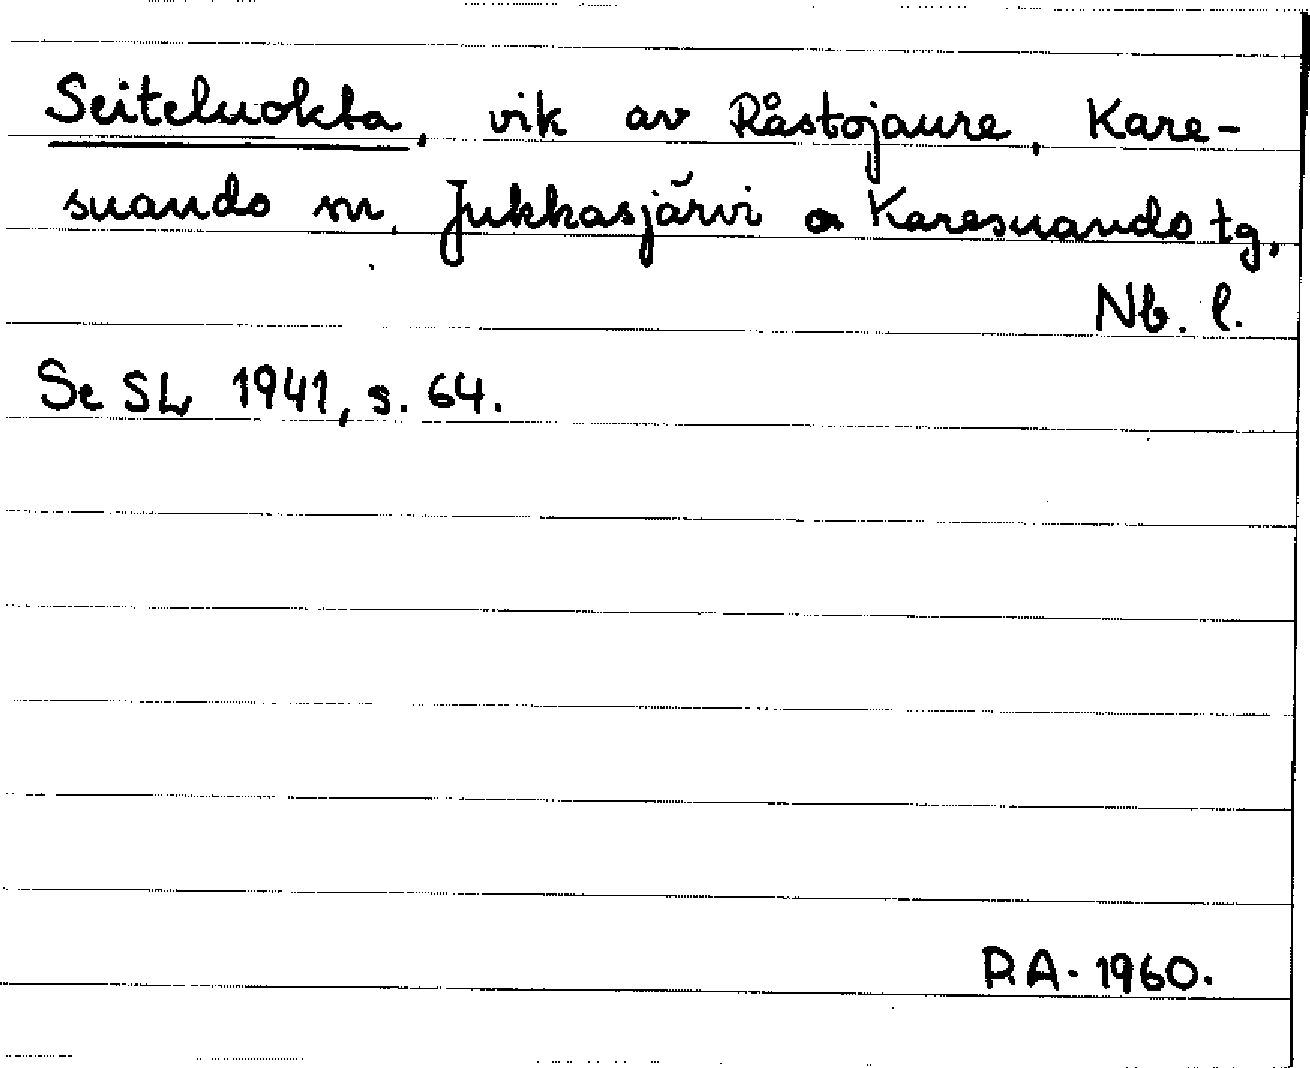 Seiteluokta, vik av Råstojaure, Kare-
suando sn, Jukkasjärvi o Karesuando tg,
Nb. l.
Se SL 1941, s. 64.
R.A. 1960.